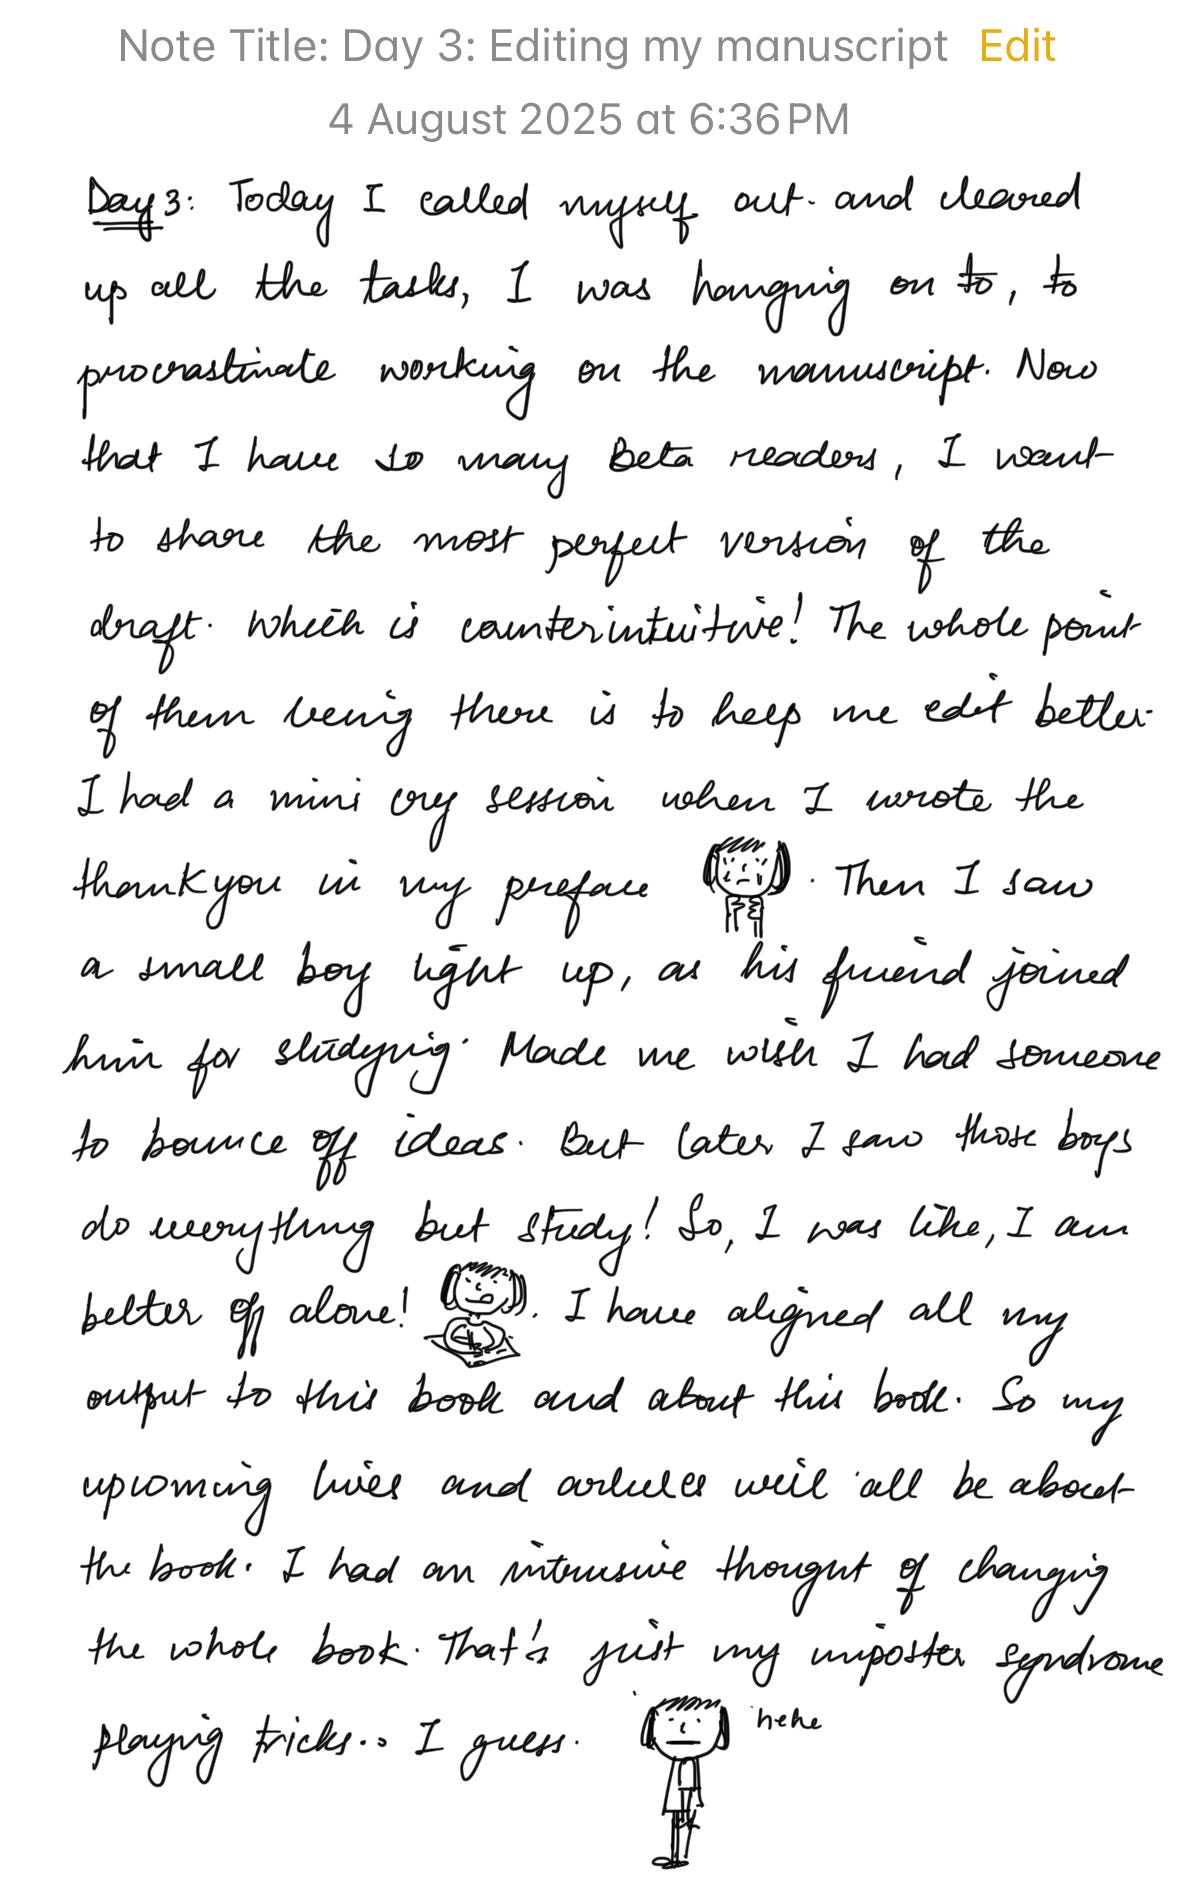 Note Title: Day 3: Editing my manuscript Edit
4 August 2025 at 6:36 PM
Day 3: Today I called myself out. and cleared
up all the tasks, I was hanging on to, to
procrastinate working on the manuscript. Now
that I have so many Beta readers, I want
to share the most perfect version of the
draft. Which is counterintuitive! The whole point
of them being there is to help me edit better.
I had a mini cry session when I wrote the
thankyou in my preface . Then I saw
a small boy light up, as his friend joined
him for studying. Made me wish I had someone
to bounce off ideas. But later I saw those boys
do everything but study! So, I was like, I am
better off alone! . I have aligned all my
output to this book and about this book. So my
upcoming lives and articles will all be about
the book. I had an intrusive thought of changing
the whole book. That's just my imposter syndrome
playing tricks.. I guess. hehe